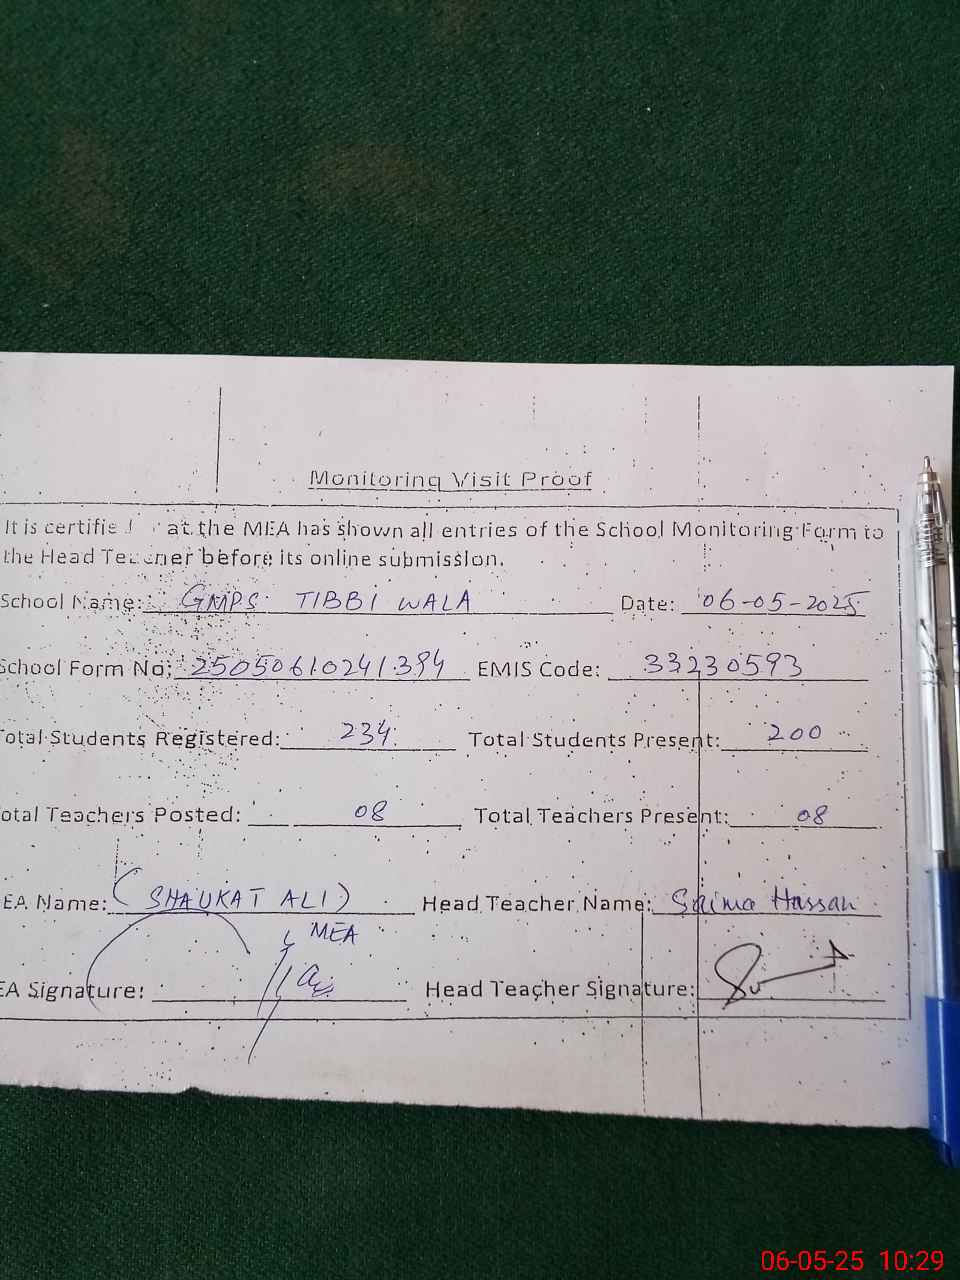 Monitoring Visit Proof
It is certified that the MEA has shown all entries of the School Monitoring Form to
the Head Teacher before its online submission.
School Name: GMPS TIBBI WALA Date: 06-05-2025
School Form No: 25050610241394 EMIS Code: 33230593
Total Students Registered: 234 Total Students Present: 200
Total Teachers Posted: 08 Total Teachers Present: 08
EA Name: (SHAUKAT ALI) Head Teacher Name: Saima Hassan
MEA
EA Signature: Head Teacher Signature:
06-05-25 10:29